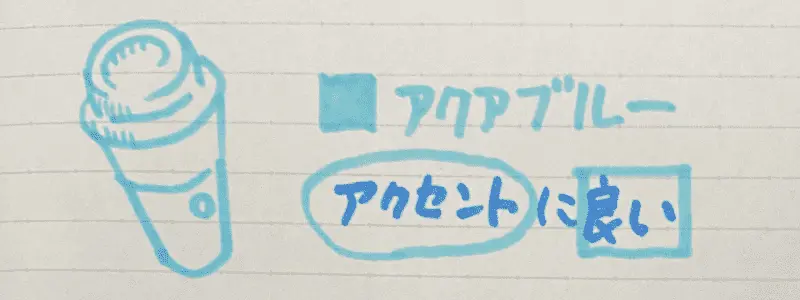 アクアブルー
アクセントに良い